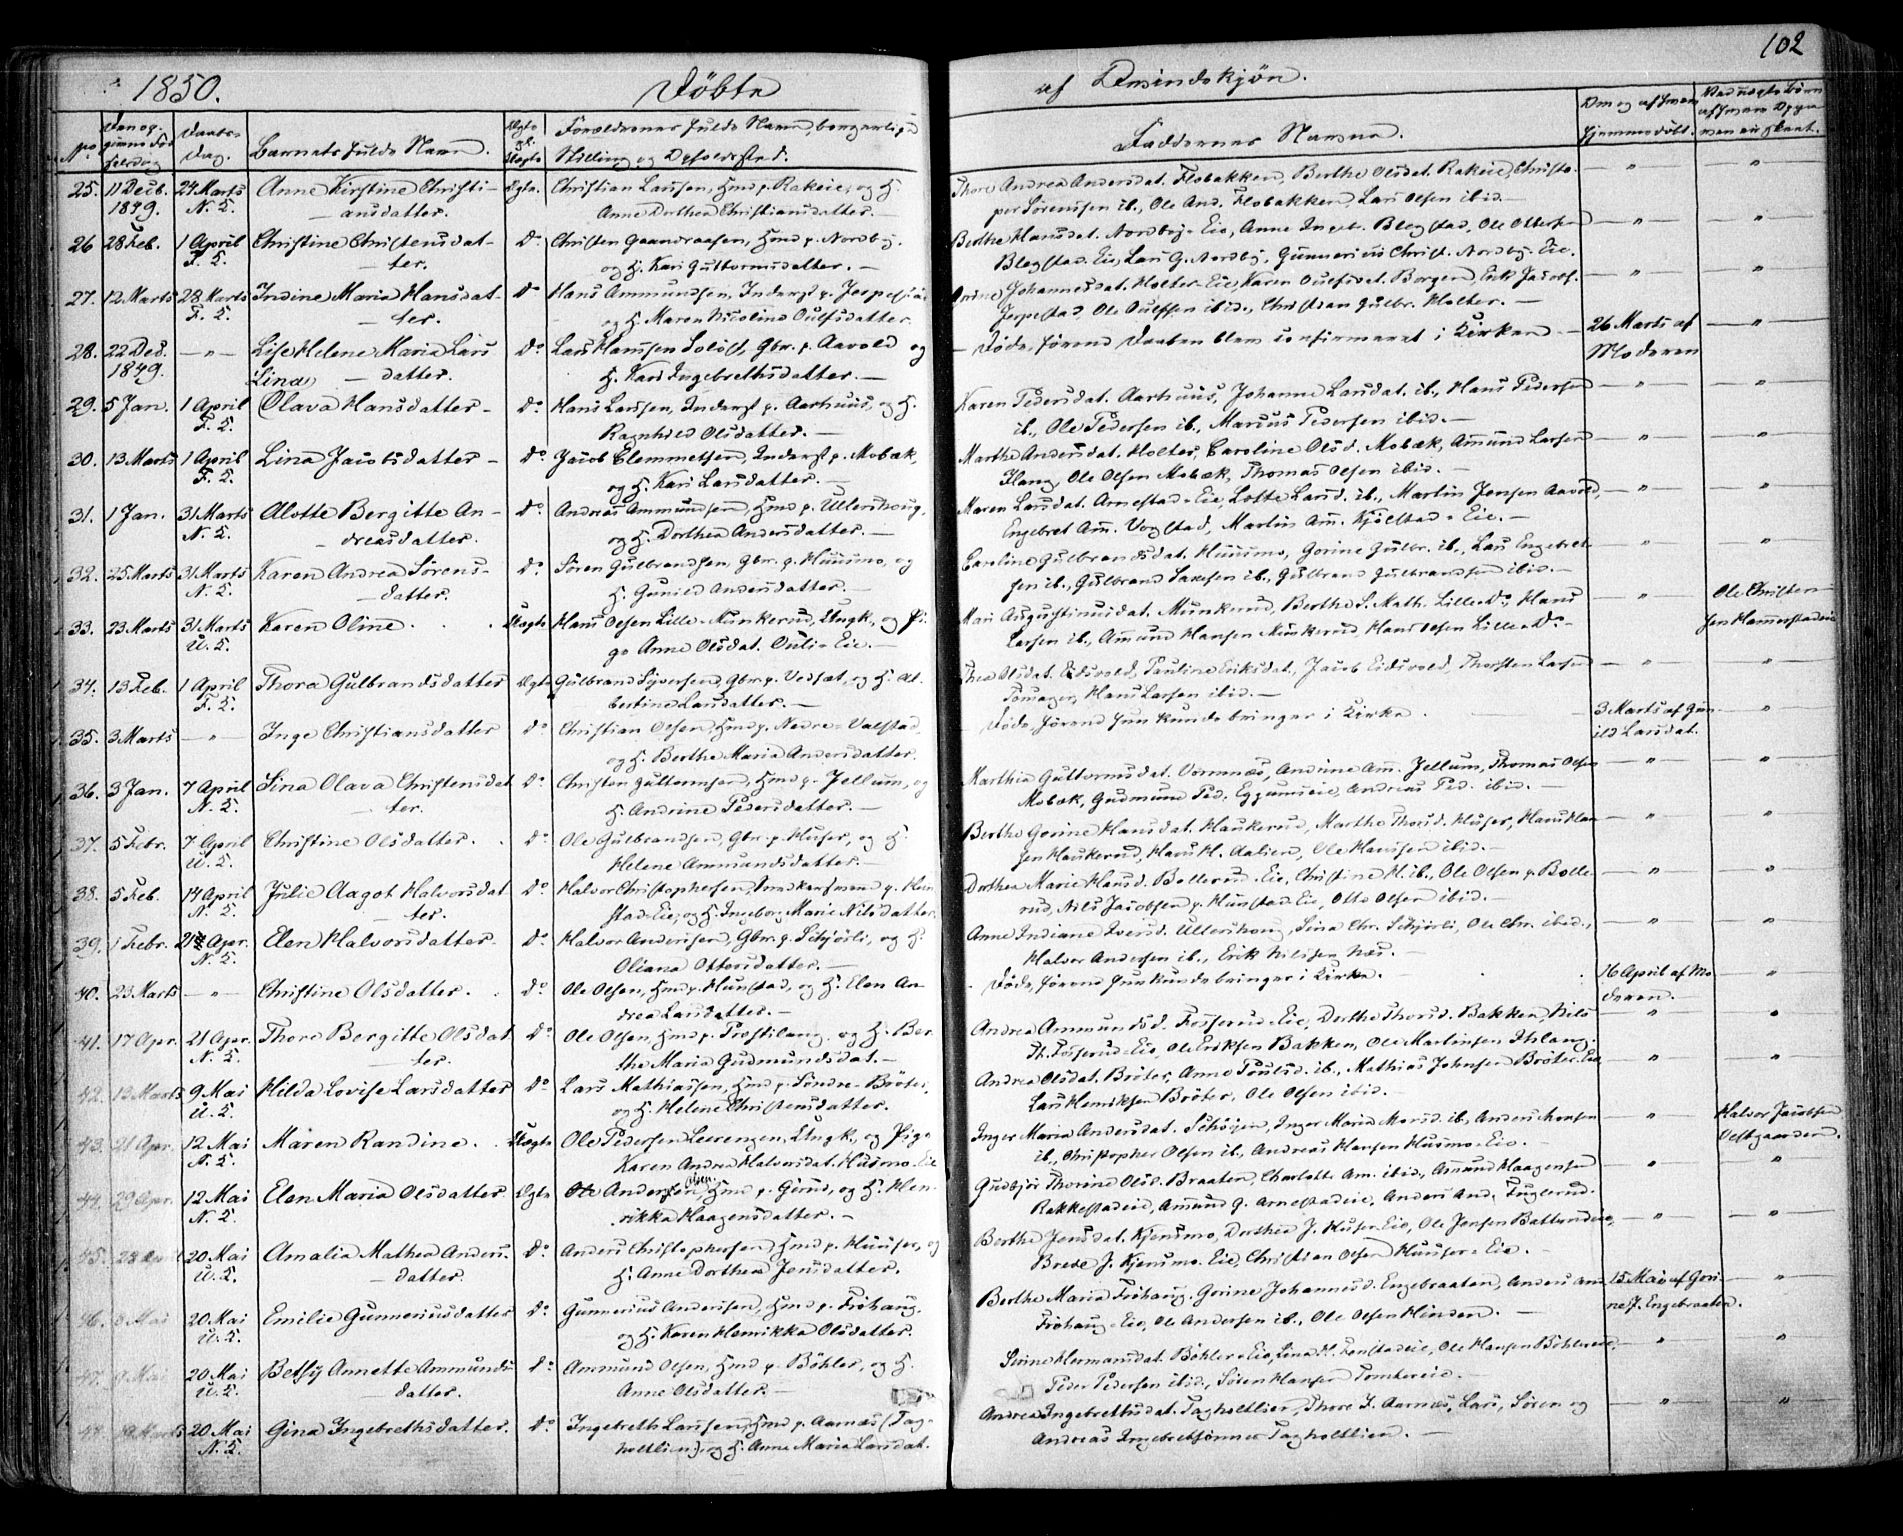 102
1850.
Döbte
af Qvindekjön.
No
Den og
Daabs-
Dag.
Barnets fulde Navn.
Ægte
Uægte
Forældrenes fulde Navn, borgerlige
Stilling og Opholdssted.
Faddernes Navne.
Om og af hvem
hjemmedöbt.
25. 11 Decb. 24 Marts Anne Kirstine Christi- Ægte. Christian Larssen, Hmd p. Rakeie, og H.
1849. N. K. ansdatter. Anne Dorthea Christiansdatter.
Thore Andrea Andersdat. Flobakken, Berthe Olsdat. Rakeie, Christo-
per Sörenssen ib., Ole And. Flobakken, Lars Olsen ibid.
26 28 Feb. 1 April Christine Christensdat- Do Christen Gaandraasen, Hmd p. Nordby,
F. K. ter. og H. Kari Guttormsdatter.
Berthe Hansdat. Nordby-Eie, Anne Ingeb. Blegstad, Ole Ottersen
Blegstad-Eie, Lars G. Nordby, Gunnerius Christ. Nordby-Eie.
27. 12 Marts 28 Marts Indine Maria Hansdat- Do Hans Ammundsen, Inderst p. Jerpestad
F. K. ter. og H. Maren Nicoline Oulfsdatter.
Johannesdat. Holter-Eie, Karen Oulfsdat. Borgen, Erik Jacobs.
Jerpestad, Ole Oulfsen ibid., Christian Gulbr. Holter.
28. 22 Dec. " Lise Helene Maria Lars Do Lars Hanssen Solöst, Gbr. p. Aavold og
1849. Lina datter. H. Kari Ingebrethsdatter.
Döde, förend Daaben blev confirmeret i Kirken 26 Marts af
Moderen
29. 5 Jan. 1 April Olava Hansdatter Do Hans Larssen, Inderst p. Aarhuus, og H.
F. K. Ragnhild Olsdatter.
Karen Pedersdat. Aarhuus, Johanne Larsdat. ib., Hans Pedersen
ib., Ole Pedersen ib., Marius Pedersen ibid.
30. 13 Marts 1 April Lina Jacobsdatter Do Jacob Clemmetsen, Inderst p. Mobæk,
F. K. og H. Kari Larsdatter.
Marthe Andersdat. Holter, Caroline Olsd. Mobæk, Amund Larsen
Ilang, Ole Olsen Mobæk, Thomas Olsen ibid.
31. 1 Jan. 31 Marts Alotte Bergitte An- Do Andreas Ammundsen, Hmd p. Ullershoug,
N. K. dreasdatter. og H. Dorthea Andersdatter.
Maren Larsdat. Arnestad-Eie, Lotte Larsd. ib., Martin Jensen Aavold,
Engebret Am. Vogstad, Martin Am. Kjölstad-Eie.
32. 25 Marts 31 Marts Karen Andrea Sörens- Do Sören Gulbrandsen, Gbr. p. Huusmo, og
N. K. datter. H. Gunild Andersdatter.
Caroline Gulbrandsdat. Huusmo, Gorine Gulbr. ib., Lars Engebret-
sen ib., Gulbrand Larsen ib., Gulbrand Gulbrandsen ibid.
33. 23 Marts 31 Marts Karen Oline Uægte Hans Olsen Lille-Munkerud, Ungk., og Pi-
U. K. ge Anne Olsdat. Ouli-Eie.
Mari Augustinusdat. Munkerud, Berthe S. Math. Lille-Do, Hans
Larsen ib., Amund Hansen Munkerud, Hans Olsen Lille-Do
Ole Christen-
sen Hamerstadeie
34. 13 Feb. 1 April Thora Gulbrandsdatter Ægte Gulbrand Syversen, Gbr. p. Vedsæt, og H. Al-
F. K. bertine Larsdatter.
Thea Olsdat. Eidsvold, Pauline Eriksdat., Jacob Eidsvold, Thorsten Larsen
Hans Larsen ibid.
35. 3 Marts " Inge Christiansdatter Do Christian Olsen, Hmd p. Nedre-Valstad,
og H. Berthe Maria Andersdatter.
Döde, förend hun kunde bringes i Kirke. 3 Marts af Gun-
ild Larsdat.
36. 3 Jan. 7 April Sina Olava Christensdat Do Christen Guttormsen, Hmd p. Jellum, og
N. K. ter. H. Andrine Pedersdatter.
Marthia Guttormsdat. Vormnæs, Andrine Am. Jellum, Thomas Olsen
Mobæk, Gudmund Ped. Eggumseie, Andreas Ped. ibid.
37. 5 Febr. 7 April Christine Olsdatter. Do Ole Gulbrandsen, Gbr. p. Huser, og H.
U. K. Helene Ammundsdatter.
Berthe Gorine Hansdat. Haukerud, Marthe Thorsd. Huser, Hans Han-
sen Haukerud, Hans H. Aalien, Ole Hanssen ibid.
38. 5 Feb. 14 April Julie Aagot Halvorsdat Do Halvor Christophersen, p. Hun-
N. K. ter. stad-Eie, og H. Ingeborg Marie Nilsdatter.
Dorthea Marie Hansd. Bollerud-Eie, Christine H. ib., Ole Olsen p. Bolle-
rud, Nils Jacobsen p. Hunstad-Eie, Otto Olsen ibid.
39. 1 Febr. 21 Apr. Elen Halvorsdatter Do Halvor Andersen, Gbr. p. Schjörli, og H.
N. K. Oliana Ottersdatter.
Anne Indiane Iversd. Ullershoug, Sina Chr. Schjörli, Ole Chr. ibid.,
Halvor Andersen ib., Erik Nilssen Næs.
40. 23 Marts " Christine Olsdatter. Do Ole Olsen, Hmd p. Hunstad, og H. Elen An-
drea Larsdatter.
Döde, förend hun kunde bringes i Kirke. 16 April af Mo-
deren.
41. 17 Apr. 21 Apr. Thore Bergitte Olsdat Do Ole Olsen, Hmd p. Præstilang, og H. Ber-
N. K. ter. the Maria Gudmundsdat.
Andrea Ammundsd. Fosserud-Eie, Dorthe Thorsd. Bakken, Nils
Th. Fosserud-Eie, Ole Eriksen Bakken, Ole Martinsen Ihlang.
42. 13 Marts 9 Mai Hilda Lovise Larsdatter Do Lars Mathiassen, Hmd p. Söndre-Bröter,
U. K. og H. Helene Christensdatter.
Andrea Olsdat. Bröter, Anne Poulsd. ib., Mathias Johnsen Bröter-Eie
Lars Henriksen Bröter, Ole Olsen ibid.
43. 21 Apr. 12 Mai Maren Randine. Uægte Ole Pedersen Leerengen, Ungk., og Pige
N. K. Karen Andrea Halvorsdat. Husmo-Eie
Inger Maria Andersdat. Schöien, Inger Maria Morsd. ib., Anders Morsen
ib., Christopher Olsen ib., Andreas Hansen Husmo-Eie.
Halvor Jacobsen
Vestgaarden.
44. 29 Apr. 12 Mai Elen Maria Olsdatter Ægte Ole Andersen, Hmd p. Gjerud, og H. Hen-
N. K. rikka Haagensdatter.
Gudbjör Thorine Olsd. Braaten, Charlotte Am. ibid., Amund Haagensen
Rakkestadeie, Amund G. Arnestadeie, Anders And. Fuglerud.
45. 28 Ap 20 Mai Amalia Mathea Anders- Do Anders Christophersen, Hmd p. Huuser, og
U. K. datter. H. Anne Dorthea Jensdatter.
Berthe Jensdat. Kjensmo, Dorthea J. Huser-Eie, Ole Jensen Battenseie,
Brede J. Kjensmo-Eie, Christian Olsen Huuser-Eie.
46. 8 Mai 20 Mai Emilie Gunneriusdatter Do Gunnerius Andersen, Hmd p. Fröhaug,
U. K. og H. Karen Henrikka Olsdatter.
Berthe Maria Fröhaug, Gorine Johannesd. Engebraaten, Anders And.
Fröhaug-Eie, Ole Andersen ib., Ole Olsen Hinden.
15 Mai af Gori-
ne J. Engebraaten.
47. 9 Mai 20 Mai Betsy Annette Ammunds- Do Ammund Olsen, Hmd p. Böhler, og H.
U. K. datter. Anne Olsdatter.
Sirine Hermansdat. Böhler-Eie, Lina H. , Ole Hansen Böhlereie,
Peder Pedersen ibid., Sören Hansen Tomtereie.
48. Marts 20 Mai Gina Ingebrethsdatter. Do Ingebreth Larssen, Hmd p. Aarnæs (Tag-
N. K. holtlien), og H. Anne Maria Larsdat.
Andrea Ingebrethsdat. Tagholtlien, Thore I. Aarnæs, Lars, Sören og
Andreas Ingebretsönner Tagholtlien.